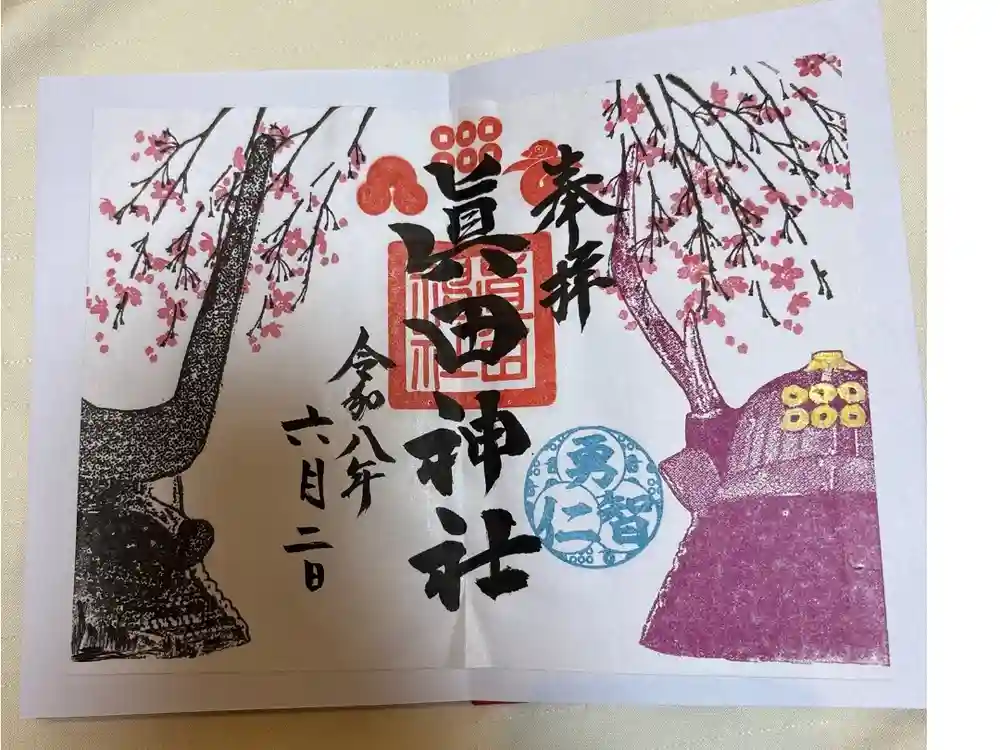 奉拝
眞田神社
令和八年
六月二日
眞田神社
勇
智
仁